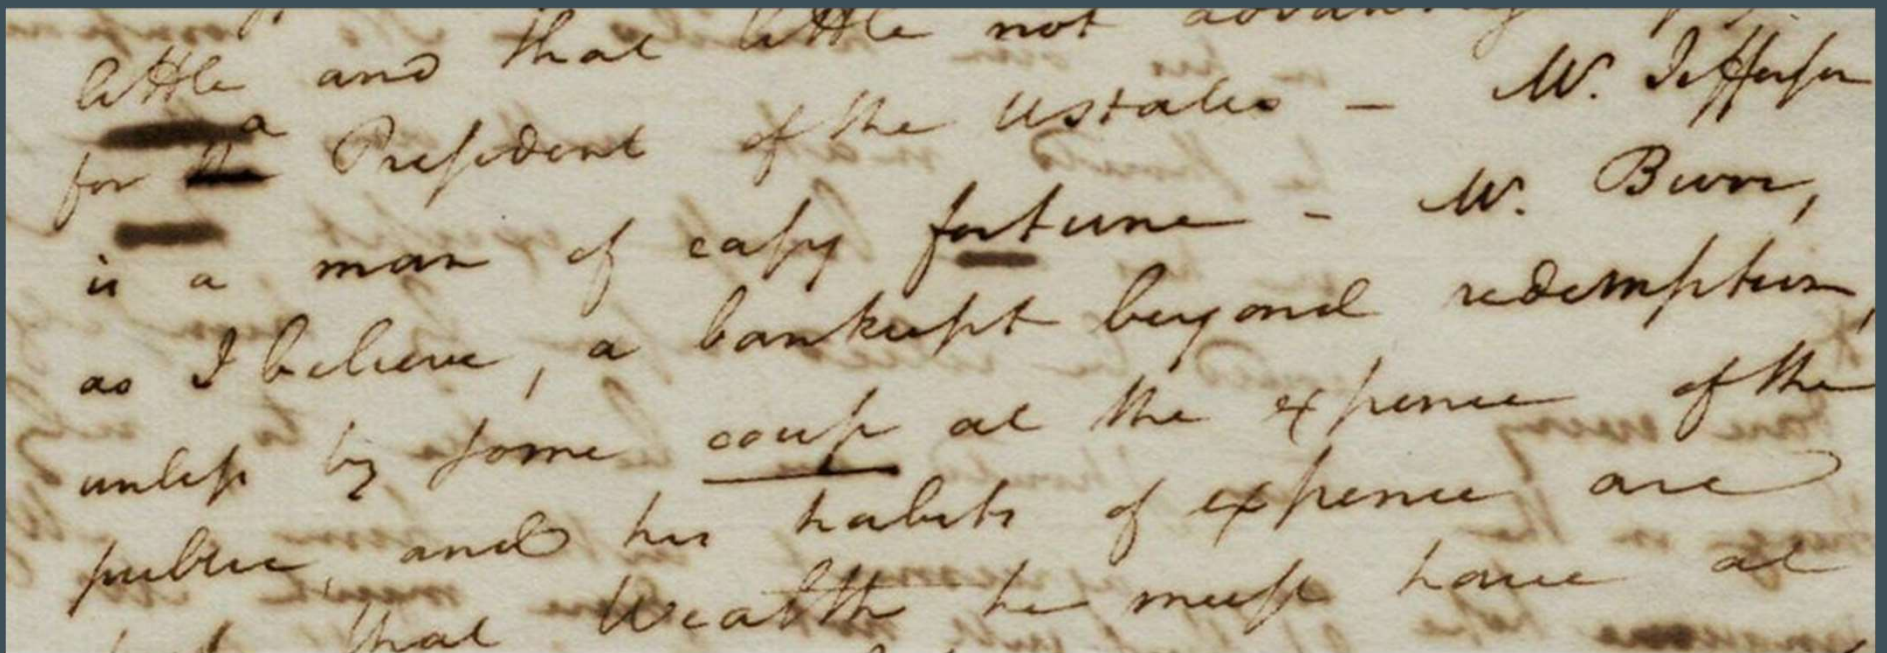 little and that little not
for a President of the UStates — Mr. Jefferson
is a man of easy fortune - Mr. Burr,
as I believe, a bankrupt beyond redemption,
unless by some coup at the expence of the
public, and his habits of expence are
that Wealth he must have at